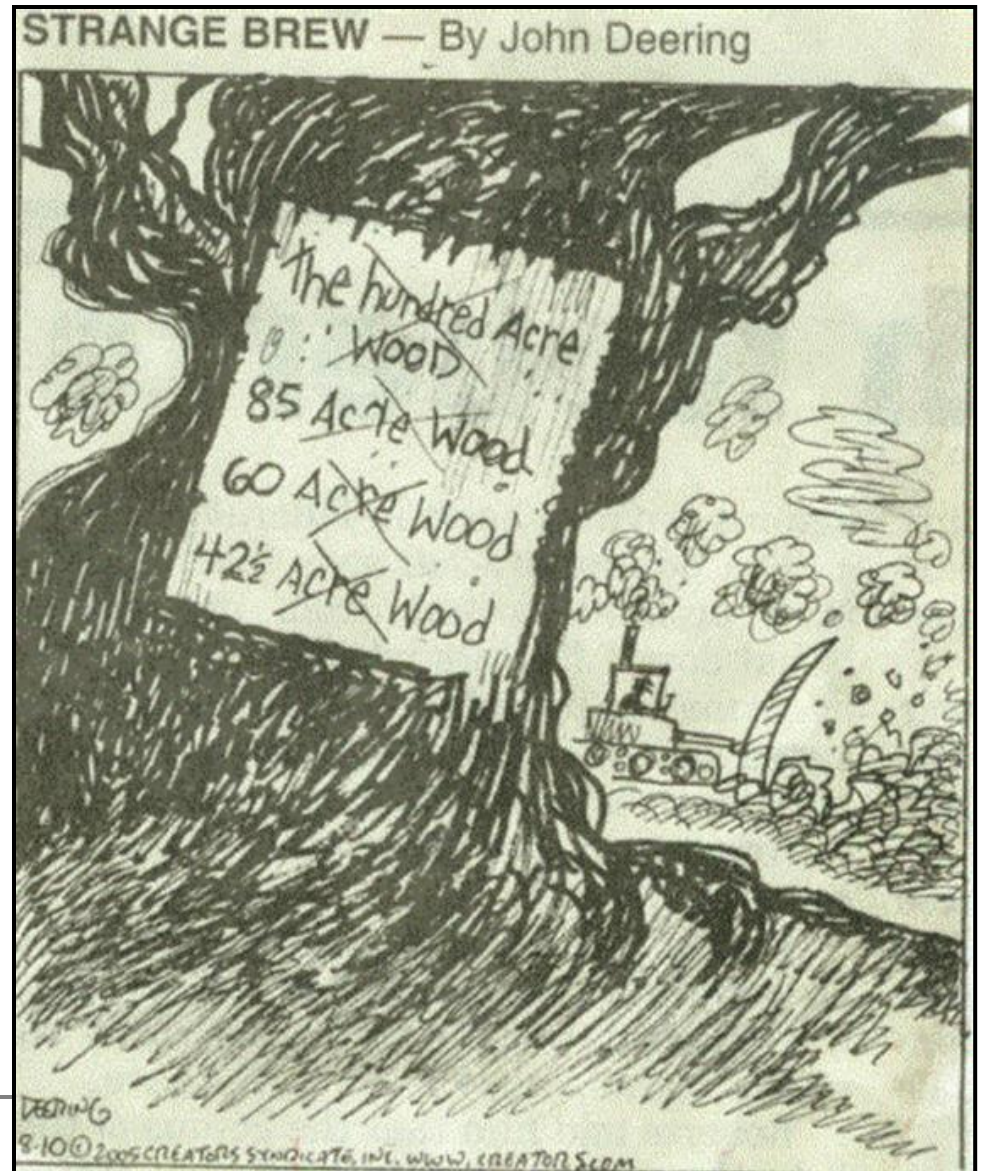 STRANGE BREW — By John Deering
The hundred Acre
WOOD
85 Acre Wood
60 Acre Wood
42½ Acre Wood
DEERING
8-10 © 2005 CREATORS SYNDICATE, INC. WWW. CREATORS.COM